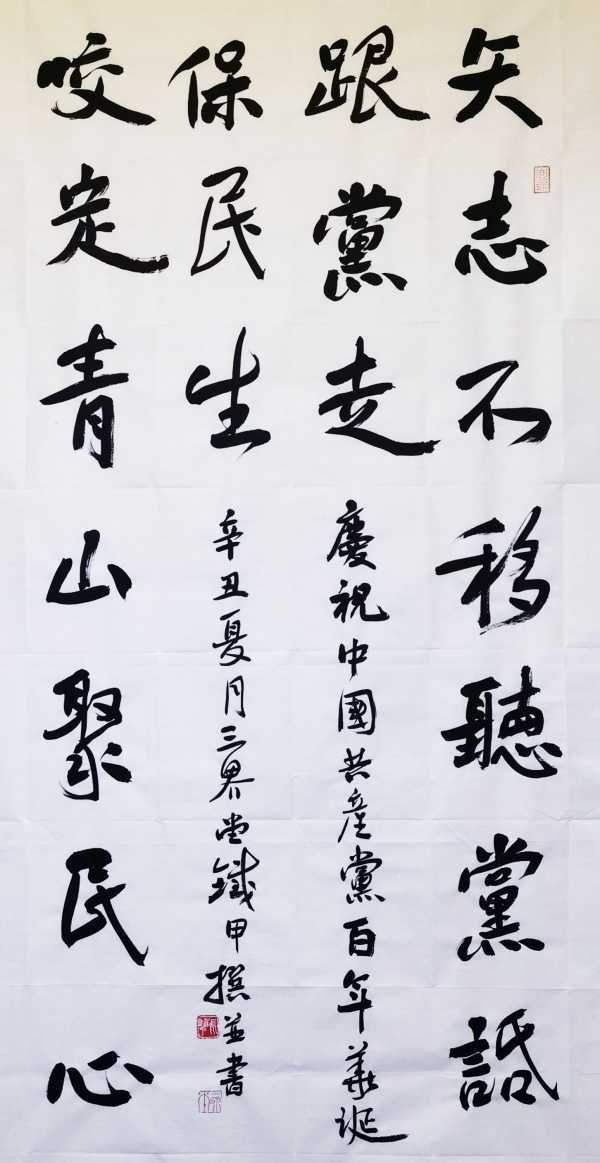 矢志不移聽黨話
跟黨走
咬定青山聚民心
保民生
慶祝中國共産黨百年華誕
辛丑夏月三界堂鐵甲撰並書